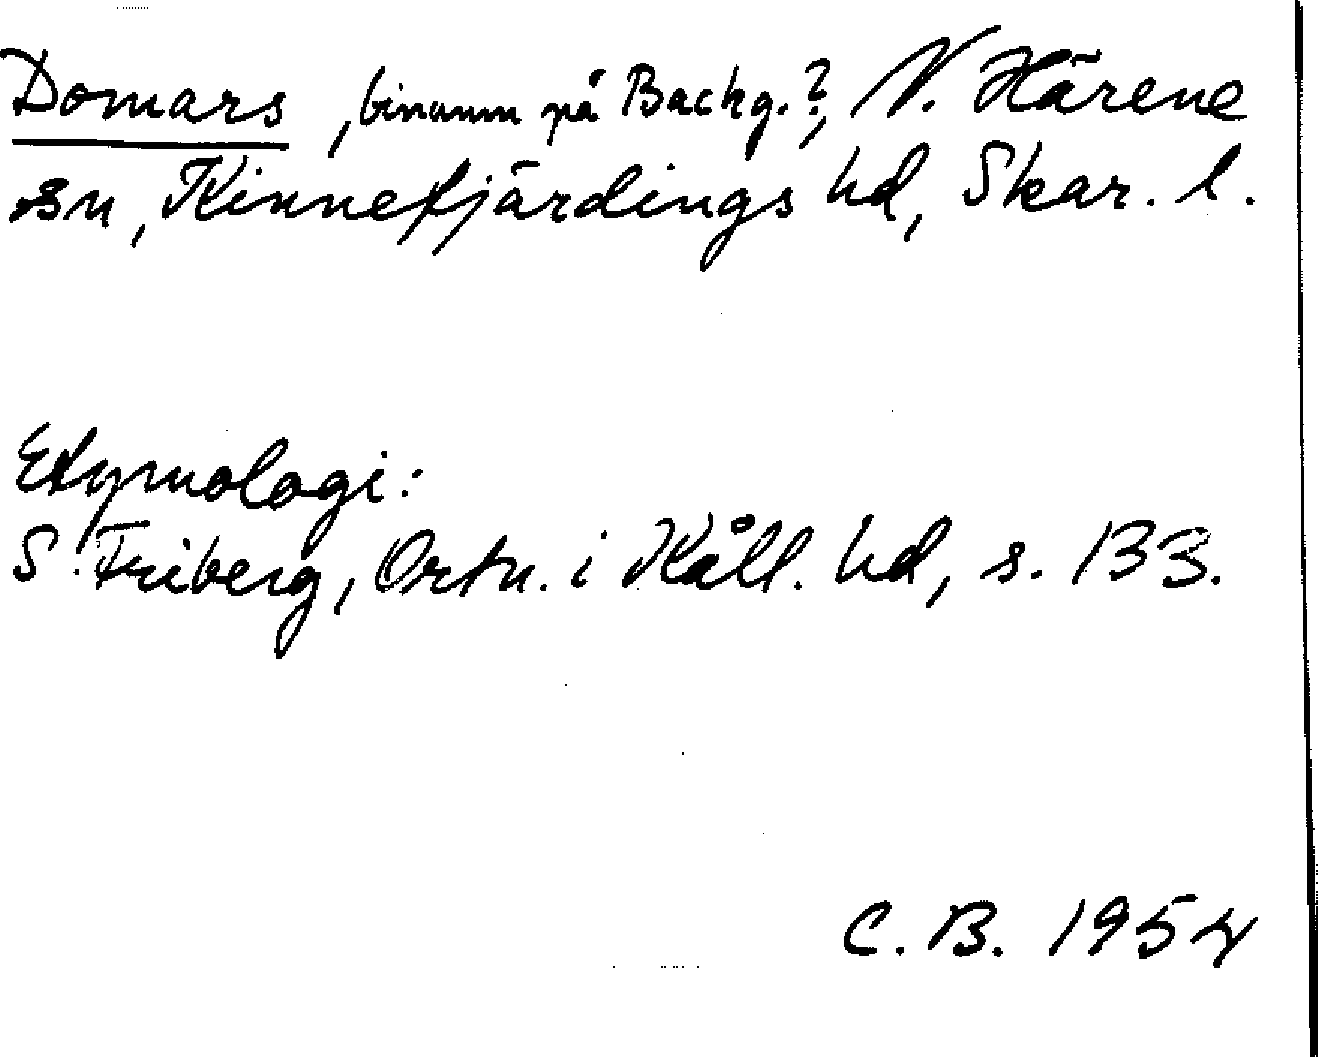 Domars, binamn på Backg.?, V. Härene
sn, Kinnefjärdings hd, Skar. l.
Etymologi:
S. Friberg, Ortn. i Kåll. hd, s. 133.
C. B. 1954